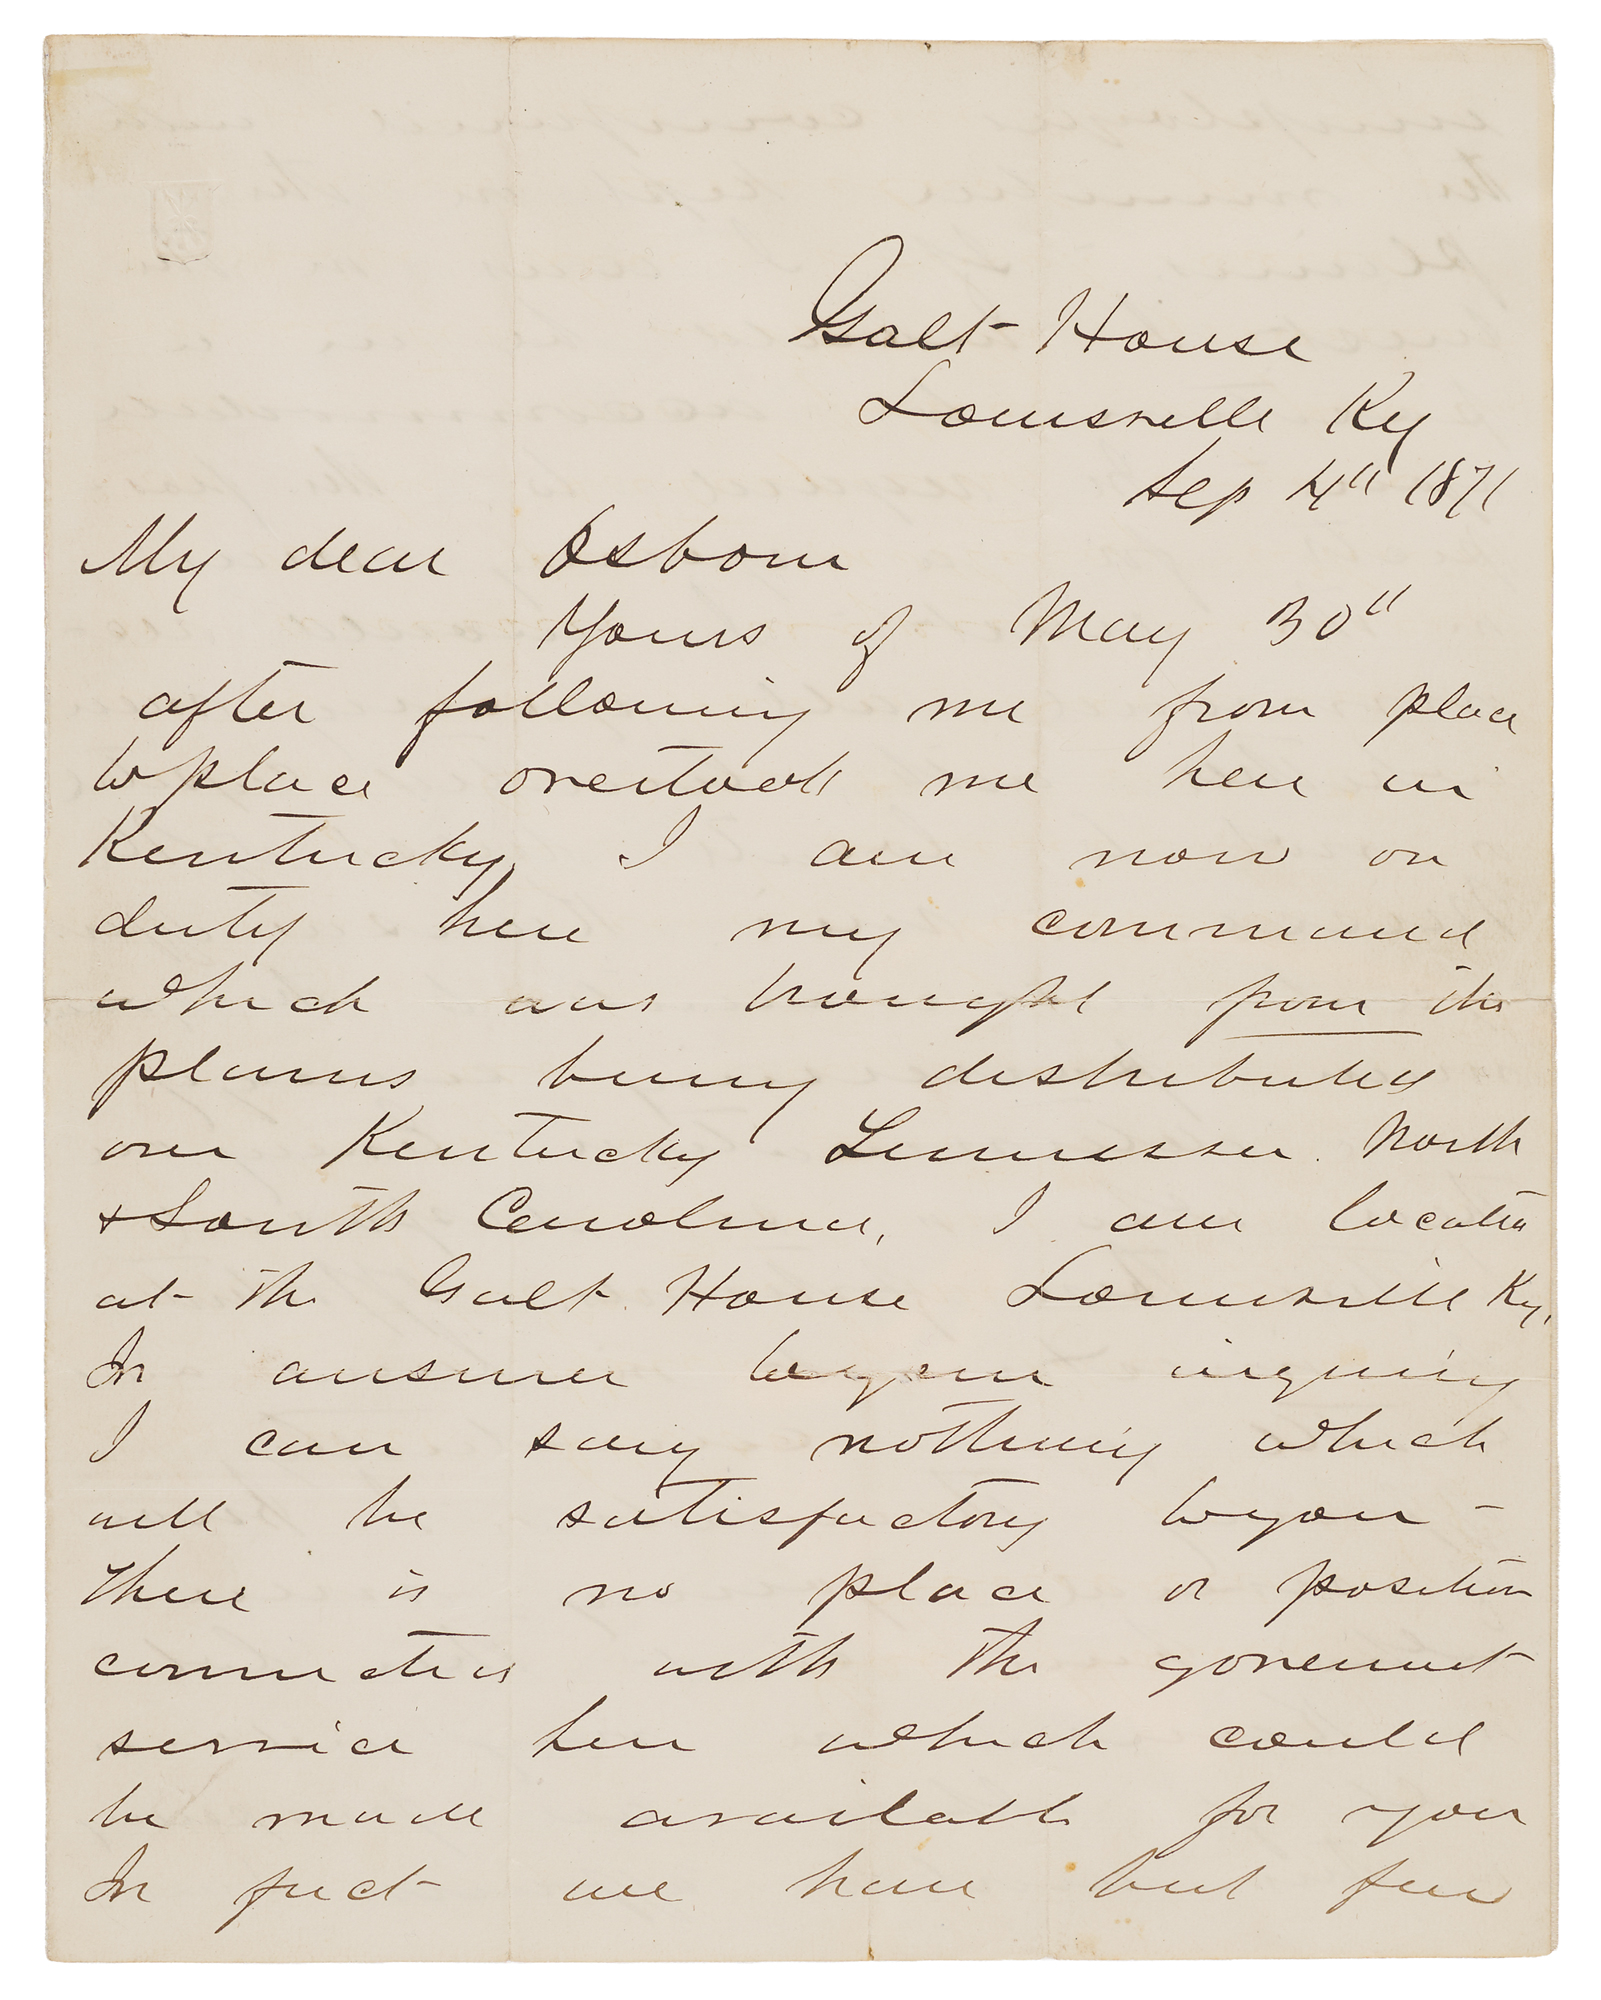 Galt House
Louisville Ky
Sep 4" 1871
My dear Osborn
Yours of May 30"
after following me from place
to place overtook me here in
Kentucky, I am now on
duty here my command
which was brought from the
plains being distributed
over Kentucky Tennessee North
& South Carolina, I am located
at the Galt House Louisville Ky,
In answer to your inquiry
I can say nothing which
will be satisfactory to you -
There is no place or position
connected with the government
service here which could
be made available for you
In fact we have but few